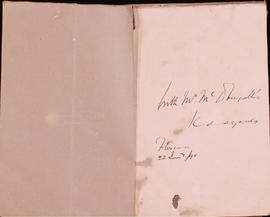 with Mr McDougall's
Kind regards
Florence
22 Jan